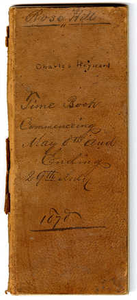 Rose Hill
Charles Heyward
Time Book
Commencing
May 6th and
Ending
29th July
1878